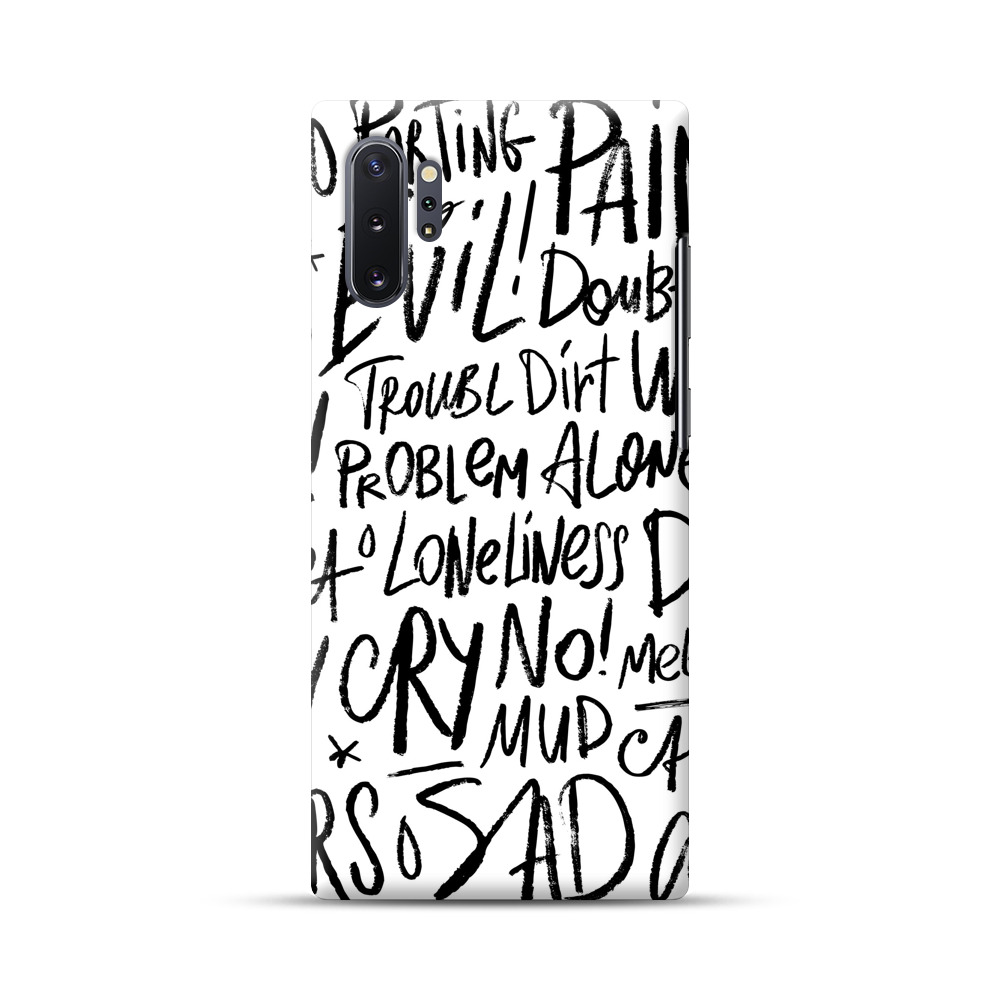 PARTING PAIN
EVIL! DOUB
TROUBL Dirt W
PROBLEM ALONE
LONELINESS D
CRY NO! Mel
MUD CA
RS SAD